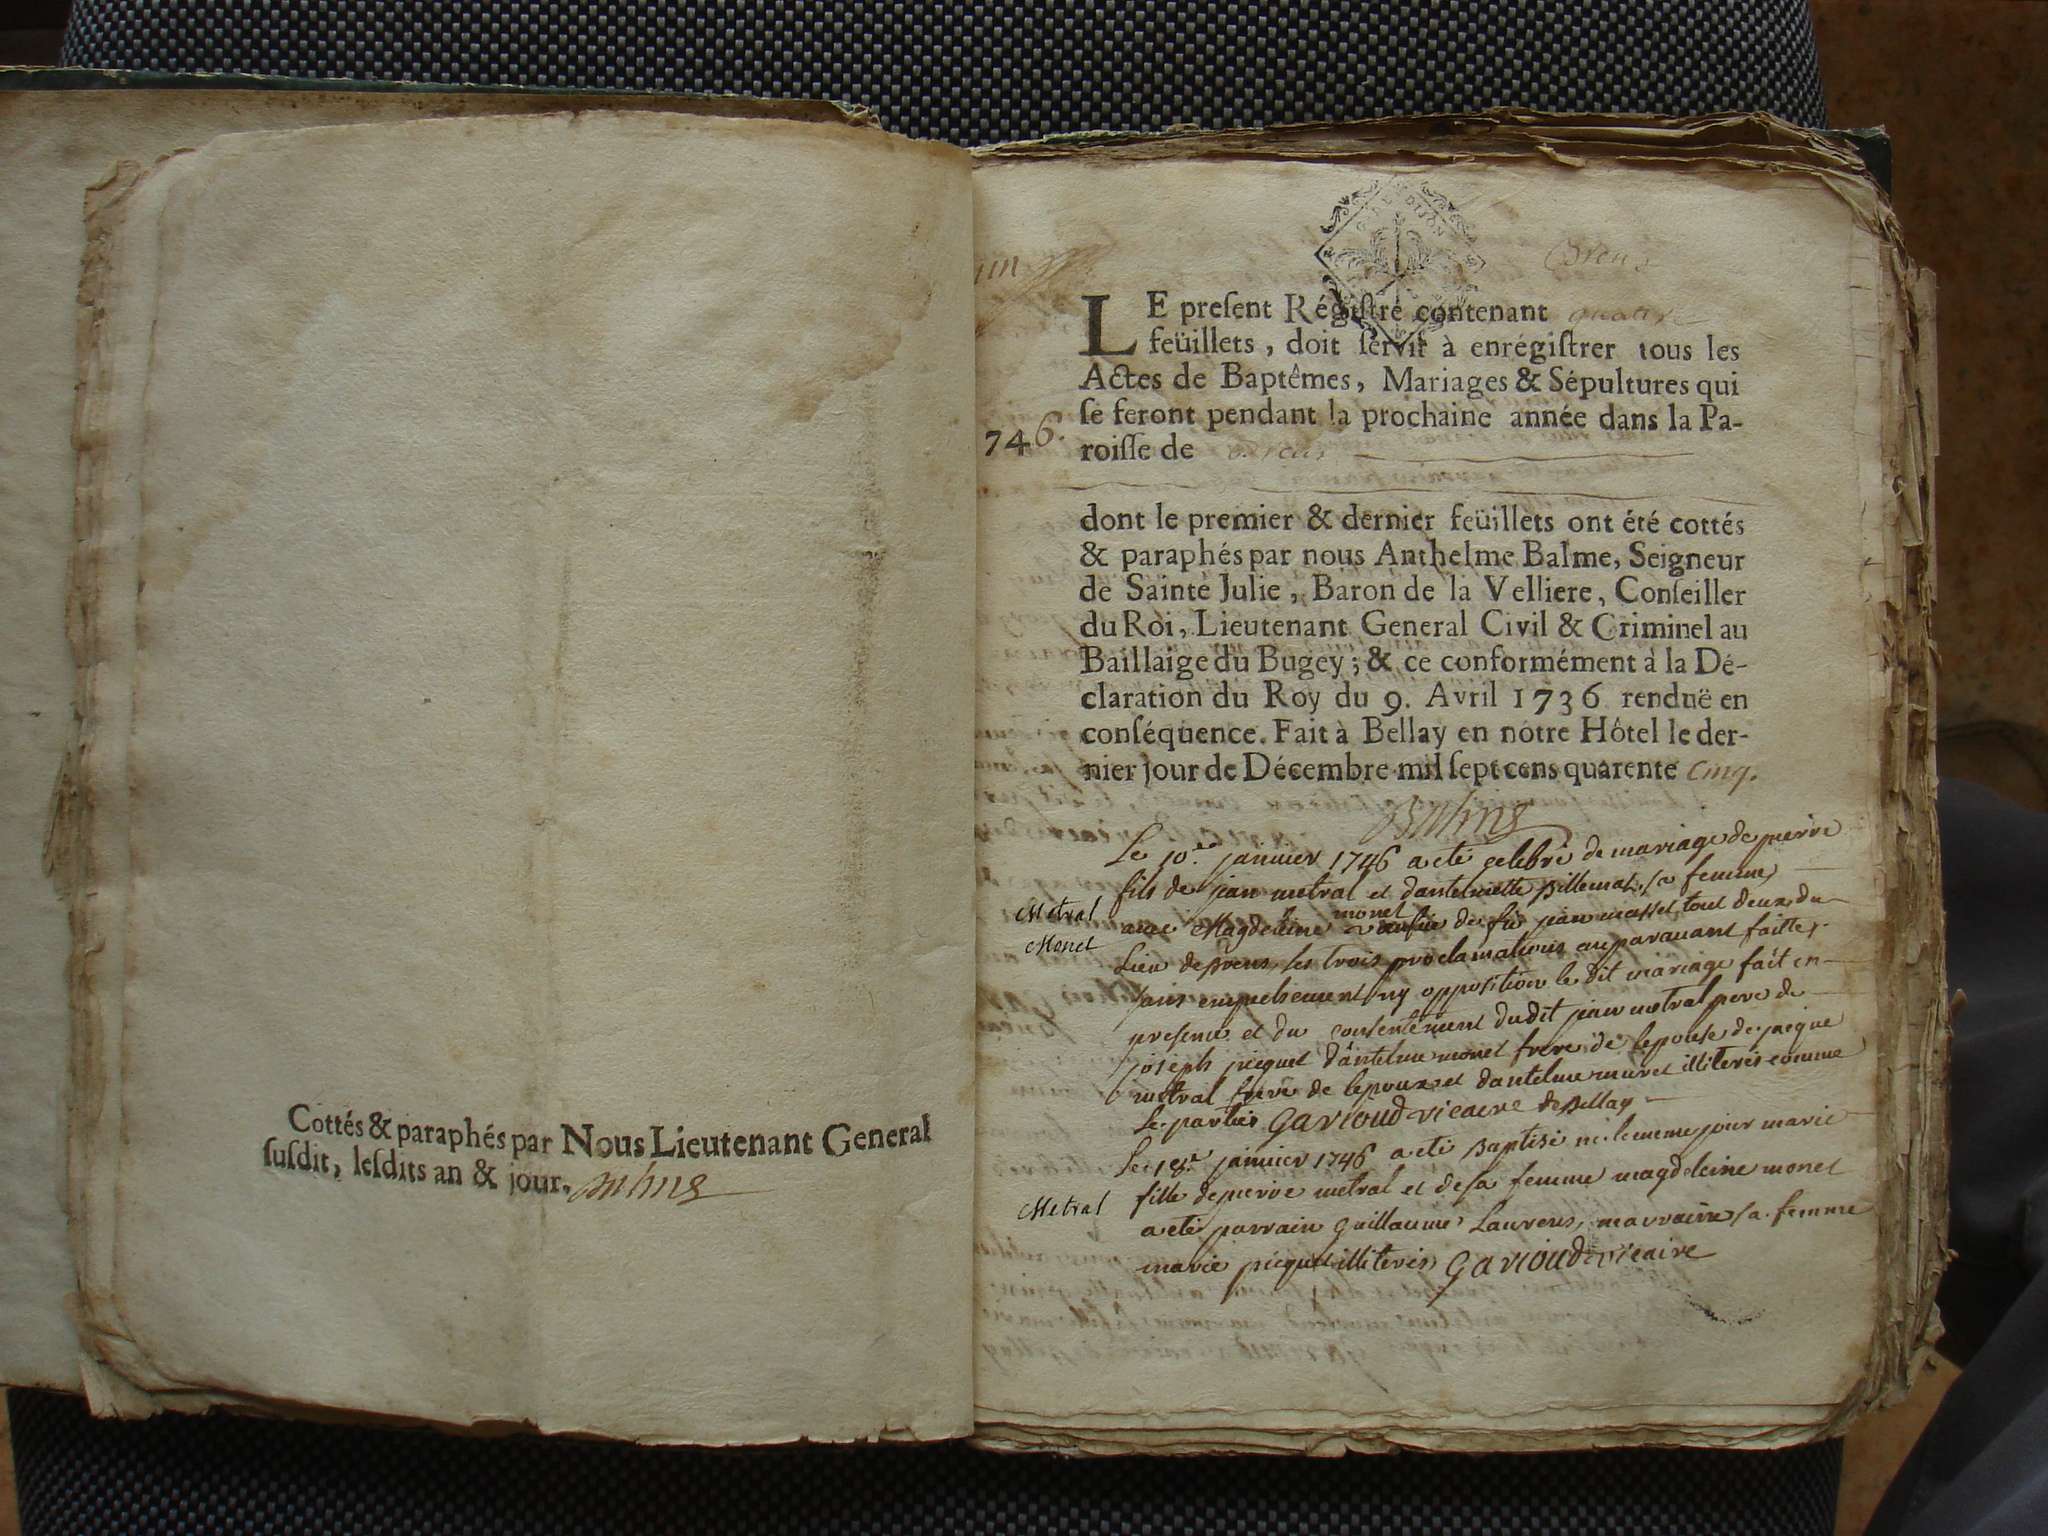 Cottés & paraphés par Nous Lieutenant General
suſdit, leſdits an & jour.
Brens
LE preſent Régiſtre contenant quatre
feüillets, doit ſervir à enrégiſtrer tous les
Actes de Baptêmes, Mariages & Sépultures qui
ſe feront pendant la prochaine année dans la Pa-
746. roiſſe de Brens
dont le premier & dernier feüillets ont été cottés
& paraphés par nous Anthelme Balme, Seigneur
de Sainte Julie, Baron de la Velliere, Conſeiller
du Roi, Lieutenant General Civil & Criminel au
Baillaige du Bugey; & ce conformément à la Dé-
claration du Roy du 9. Avril 1736 renduë en
conſéquence. Fait à Bellay en nôtre Hôtel le der-
nier jour de Décembre mil ſept cens quarente cinq.
Le 10. janvier 1746 a eté celebré de mariage de pierre
fils de jean metral et dantelmette billemat sa femme
Metral
Monet
avec Magdeleine monet de fu jean tout deux du
Lieu de brens, les trois proclamations auparavant faittes
sans empechement ny opposition le dit mariage fait en
presence et du consentement dudit jean metral pere de
joseph picquet dantelme monet frere de lepouse de jacque
metral frere de lepoux et dantelme muret illiterés comme
les parties Gavioud vicaire de Bellay
Le janvier 1746 a eté Baptisé né le meme jour marie
Metral
fille de pierre metral et de sa femme magdeleine monet
a eté parrain guillaume Laurens, marraine sa femme
marie picquet illiterés Gavioud vicaire